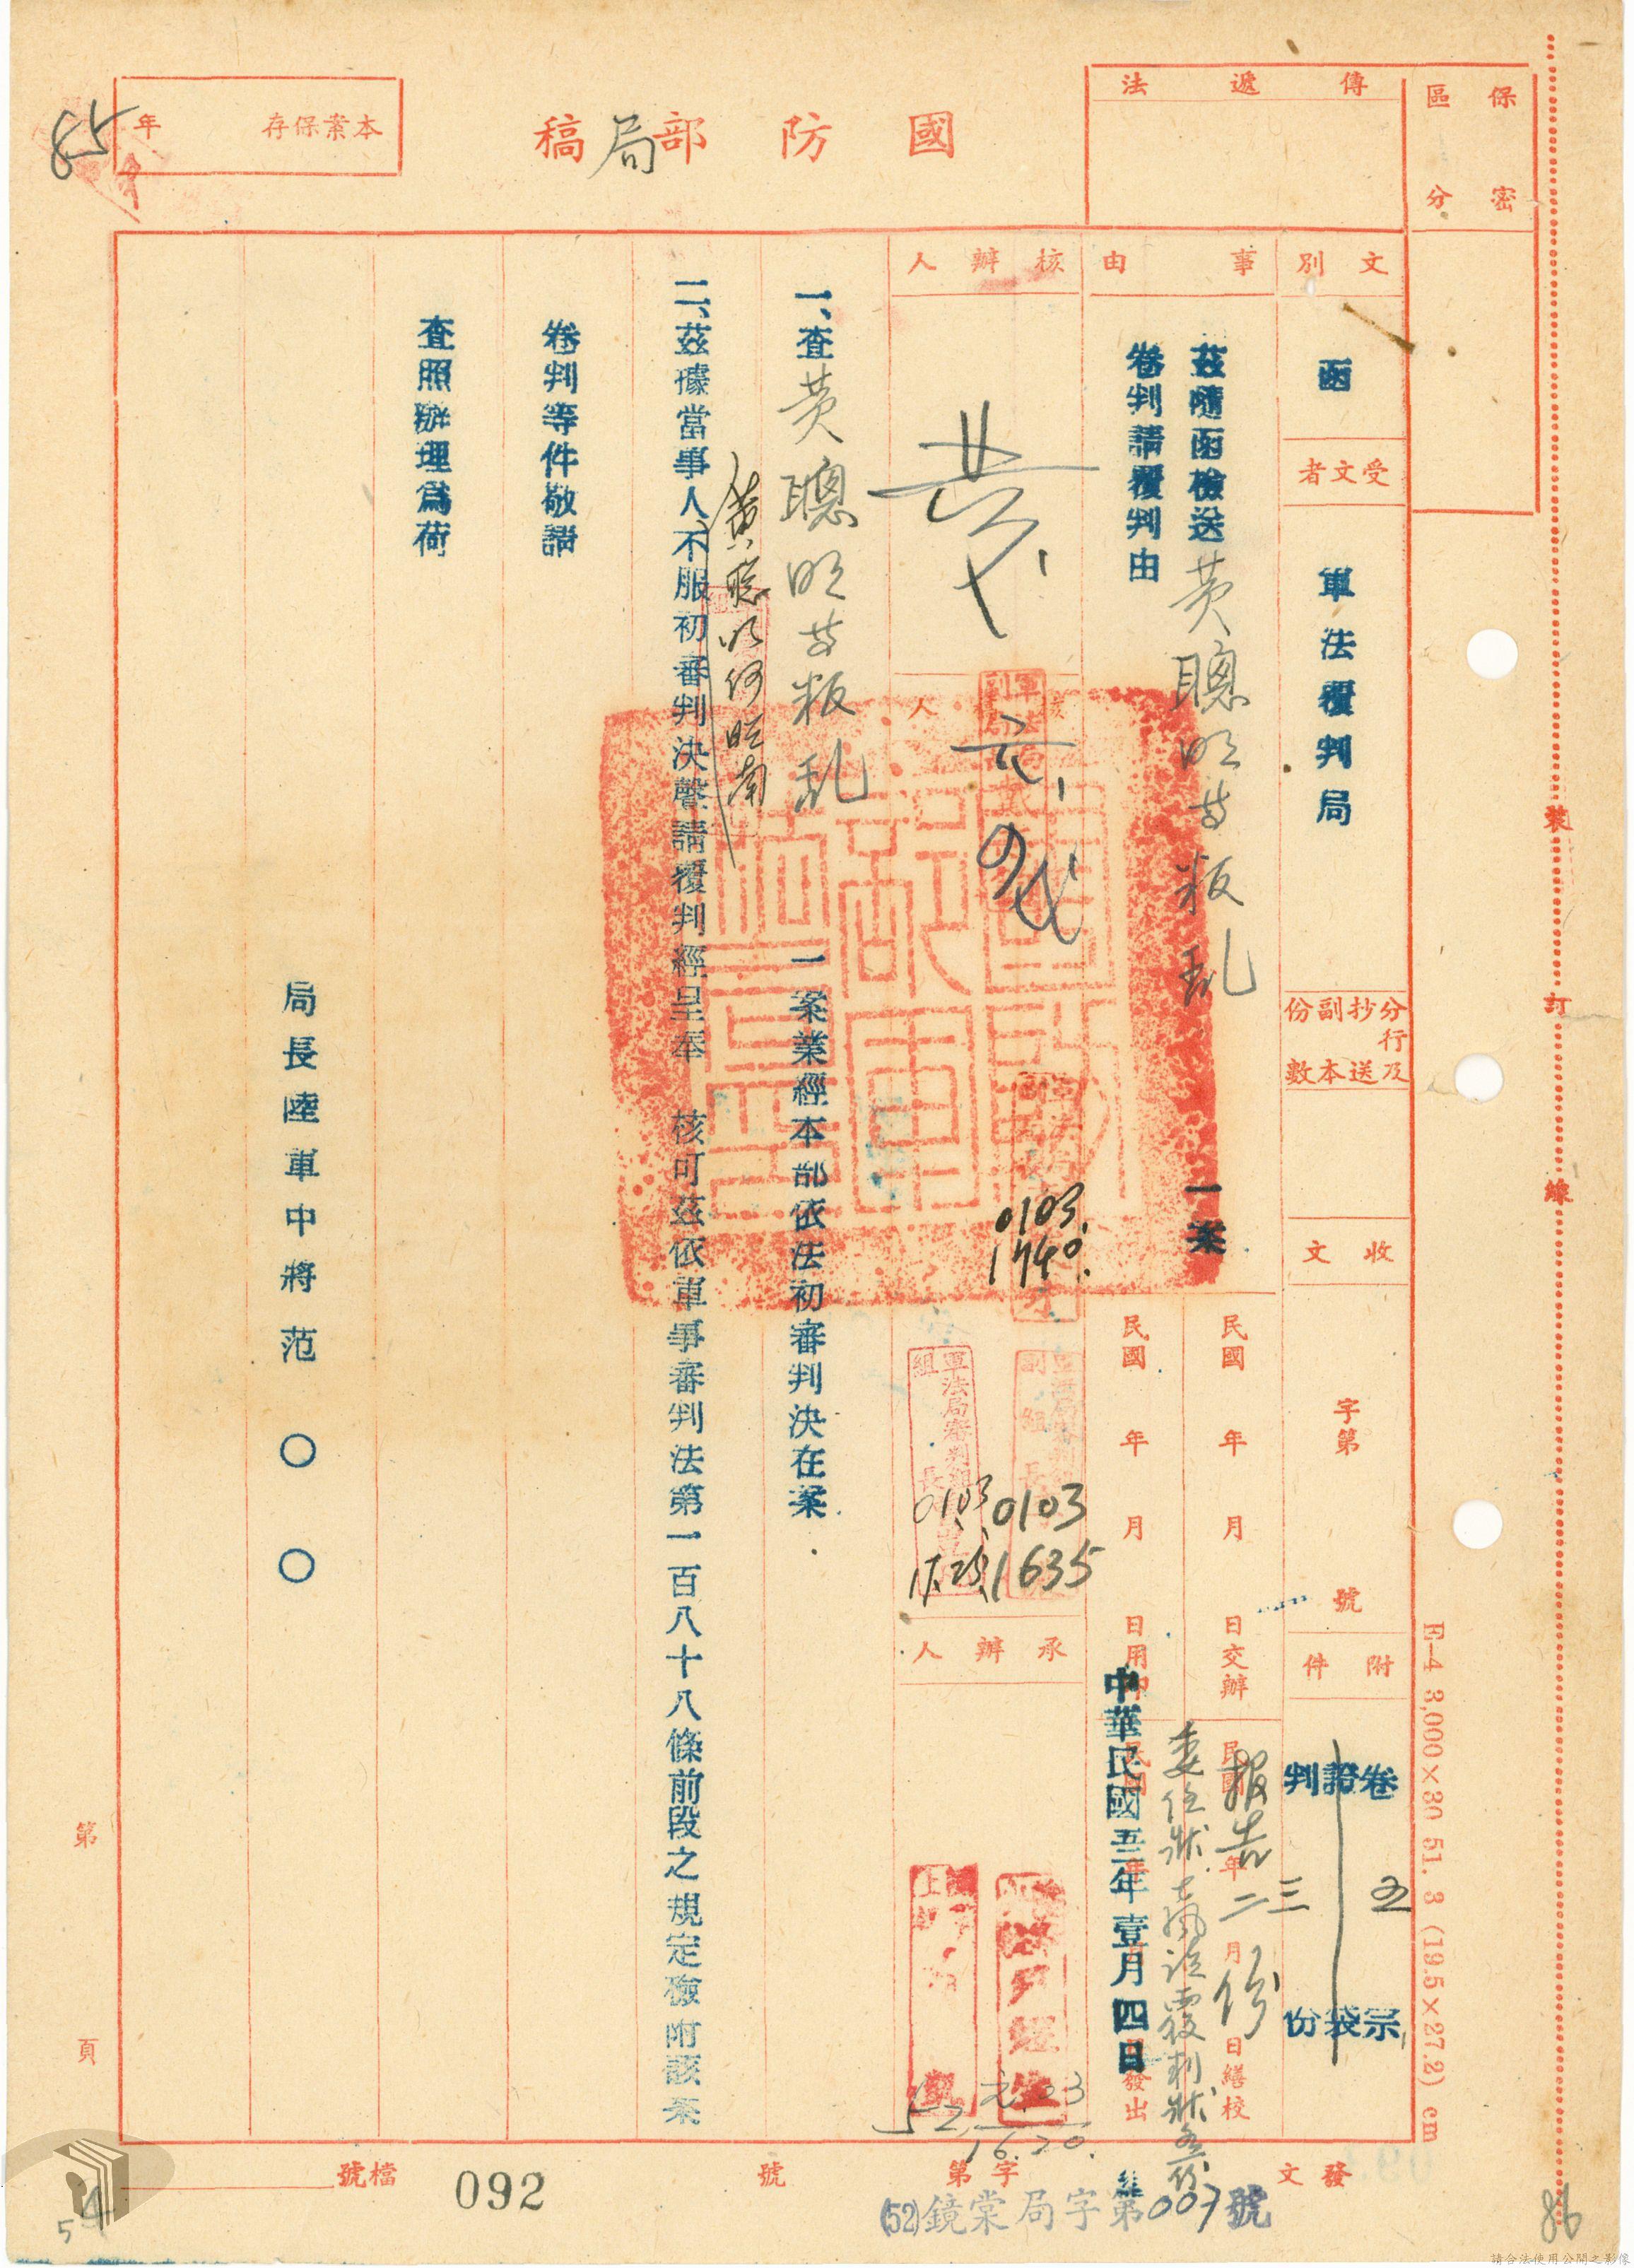 保密
區分
傳遞法
國防部局稿
本案保存 年
85
文別
函
受文者
軍法覆判局
分行及
抄送
副本
份數
收文
字第 號
附件
卷 五 宗
證 袋
判 三 份
報告二份
委任狀 聲請覆判狀各一份
事由
茲隨函檢送黃聰明等叛乱 一案
卷判請覆判由
民國 年 月 日交辦
民國 年 月 日繕校
民國 年 月 日用印
中華民國五二年壹月四日
發出
核辦人
0103.
1740.
軍法局審判組
副組長
0103
1635
軍法局審判組
組長
0103
承辦人
元.03
16.20.
52
一、查黃聰明等叛乱 一案業經本部依法初審判決在案
二、茲據當事人黃聰明何昭南不服初審判決聲請覆判經呈奉 核可茲依軍事審判法第一百八十八條前段之規定檢附該案
卷判等件敬請
查照辦理為荷
局長陸軍中將范○○
裝
訂
線
E-4 3,000×30 51. 3 (19.5×27.2) cm
第 頁
發文
字第 號
(52)鏡棠局字第007號
檔號
092
54
86
請合法使用公開之影像